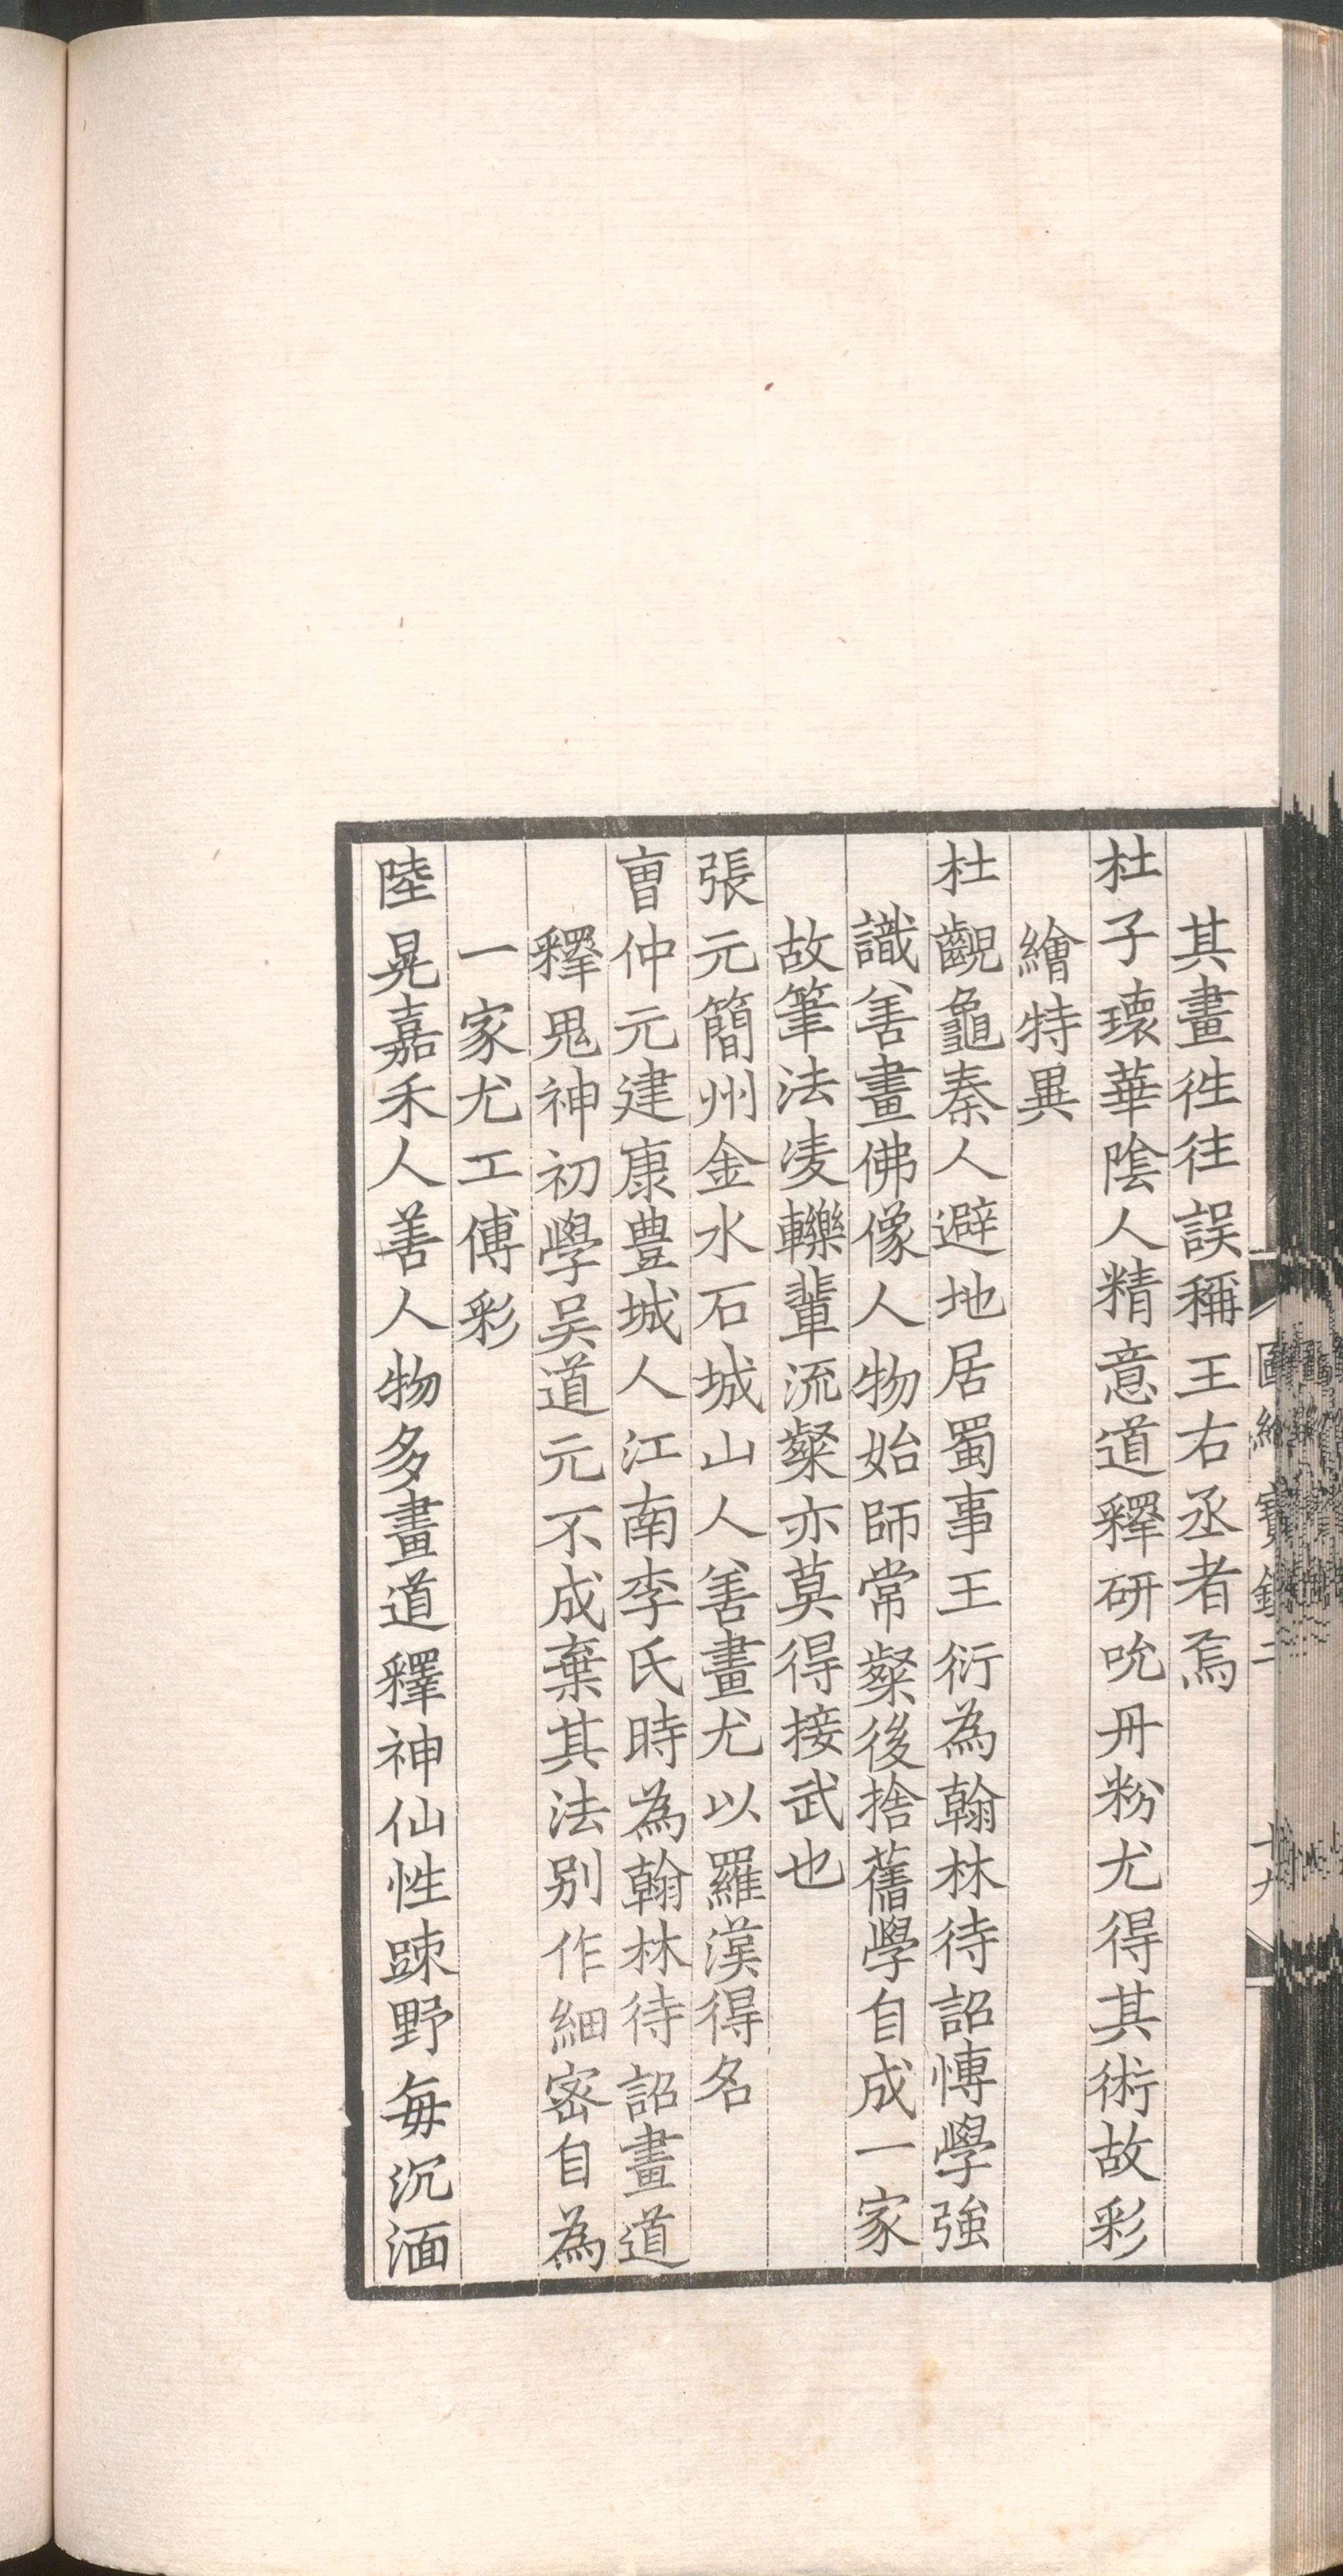 其畫徃往誤稱王右丞者焉
杜子瓌華陰人精意道釋研吮丹粉尤得其術故彩
繪特異
杜齯龜秦人避地居蜀事王衍為翰林待詔博學強
識善畫佛像人物始師常粲後捨舊學自成一家
故筆法凌轢輩流粲亦莫得接武也
張元簡州金水石城山人善畫尤以羅漢得名
曺仲元建康豊城人江南李氏時為翰林待詔畫道
釋鬼神初學吴道元不成棄其法别作細密自為
一家尤工傅彩
陸晃嘉禾人善人物多畫道釋神仙性踈野每沉湎
圖繪寶鑑二
十九